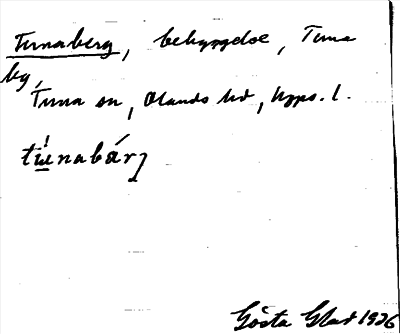 Tunaberg, bebyggelse, Tuna
by, Tuna sn, Olands hd, Upps. l.
tú̱nabárj
Gösta Glad 1926